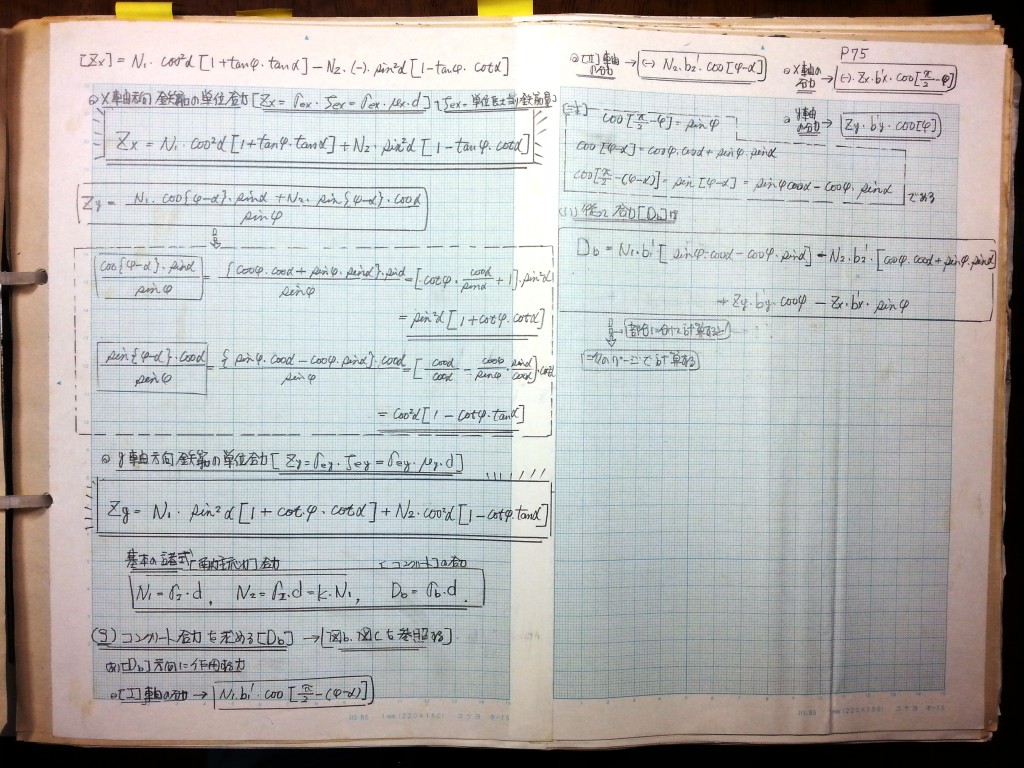 [Zx] = N1・cos²α [1+tanφ・tanα] − N2・(-)・sin²α [1-tanφ・cotα]
X軸方向 鉄筋の単位合力 [Zx = σex・ζex = σex・μx・d]
Zx = N1・cos²α [1+tanφ・tanα] + N2・sin²α [1 − tanφ・cotα]
Zy = N1・cos{φ-α}・sinα + N2・sin{φ-α}・cosα / sinφ
cos{φ-α}・sinα / sinφ = {cosφ・cosα + sinφ・sinα}・sinα / sinφ = [cotφ・cosα/sinα + 1]・sin²α
= sin²α [1+cotφ・cotα]
sin{φ-α}・cosα / sinφ = {sinφ・cosα − cosφ・sinα}・cosα / sinφ = [cosα/cosα − cosφ/sinφ・sinα/cosα]・cos²α
= cos²α [1 − cotφ・tanα]
y軸方向 鉄筋の単位合力 [Zy = σey・ζey = σey・μy・d]
Zy = N1・sin²α [1 + cotφ・cotα] + N2・cos²α [1-cotφ・tanα]
基本の諸式
N1 = σI・d, N2 = σII・d = k・N1, Db = σb・d.
(9) コンクリート合力を求める [Db] → [図b.図cを参照する]
[Db]方向に作用する力
[I]軸の分力 → N1・b1'・cos [π/2 − (φ-α)]
P75
[II]軸の分力 → (-) N2・b2'・cos [φ-α]
X軸の分力 → (-)・Zx・b'x・cos [π/2 − φ]
y軸の分力 → Zy・b'y・cos[φ]
cos [π/2 − φ] = sinφ
cos [φ-α] = cosφ・cosα + sinφ・sinα
cos [π/2 − (φ-α)] = sin [φ-α] = sinφ cosα − cosφ・sinα
である
従って 合力 [Db] は
Db = N1・b1'・[sinφ・cosα − cosφ・sinα] − N2・b2'・[cosφ・cosα + sinφ・sinα]
+ Zy・b'y・cosφ − Zx・b'x・sinφ